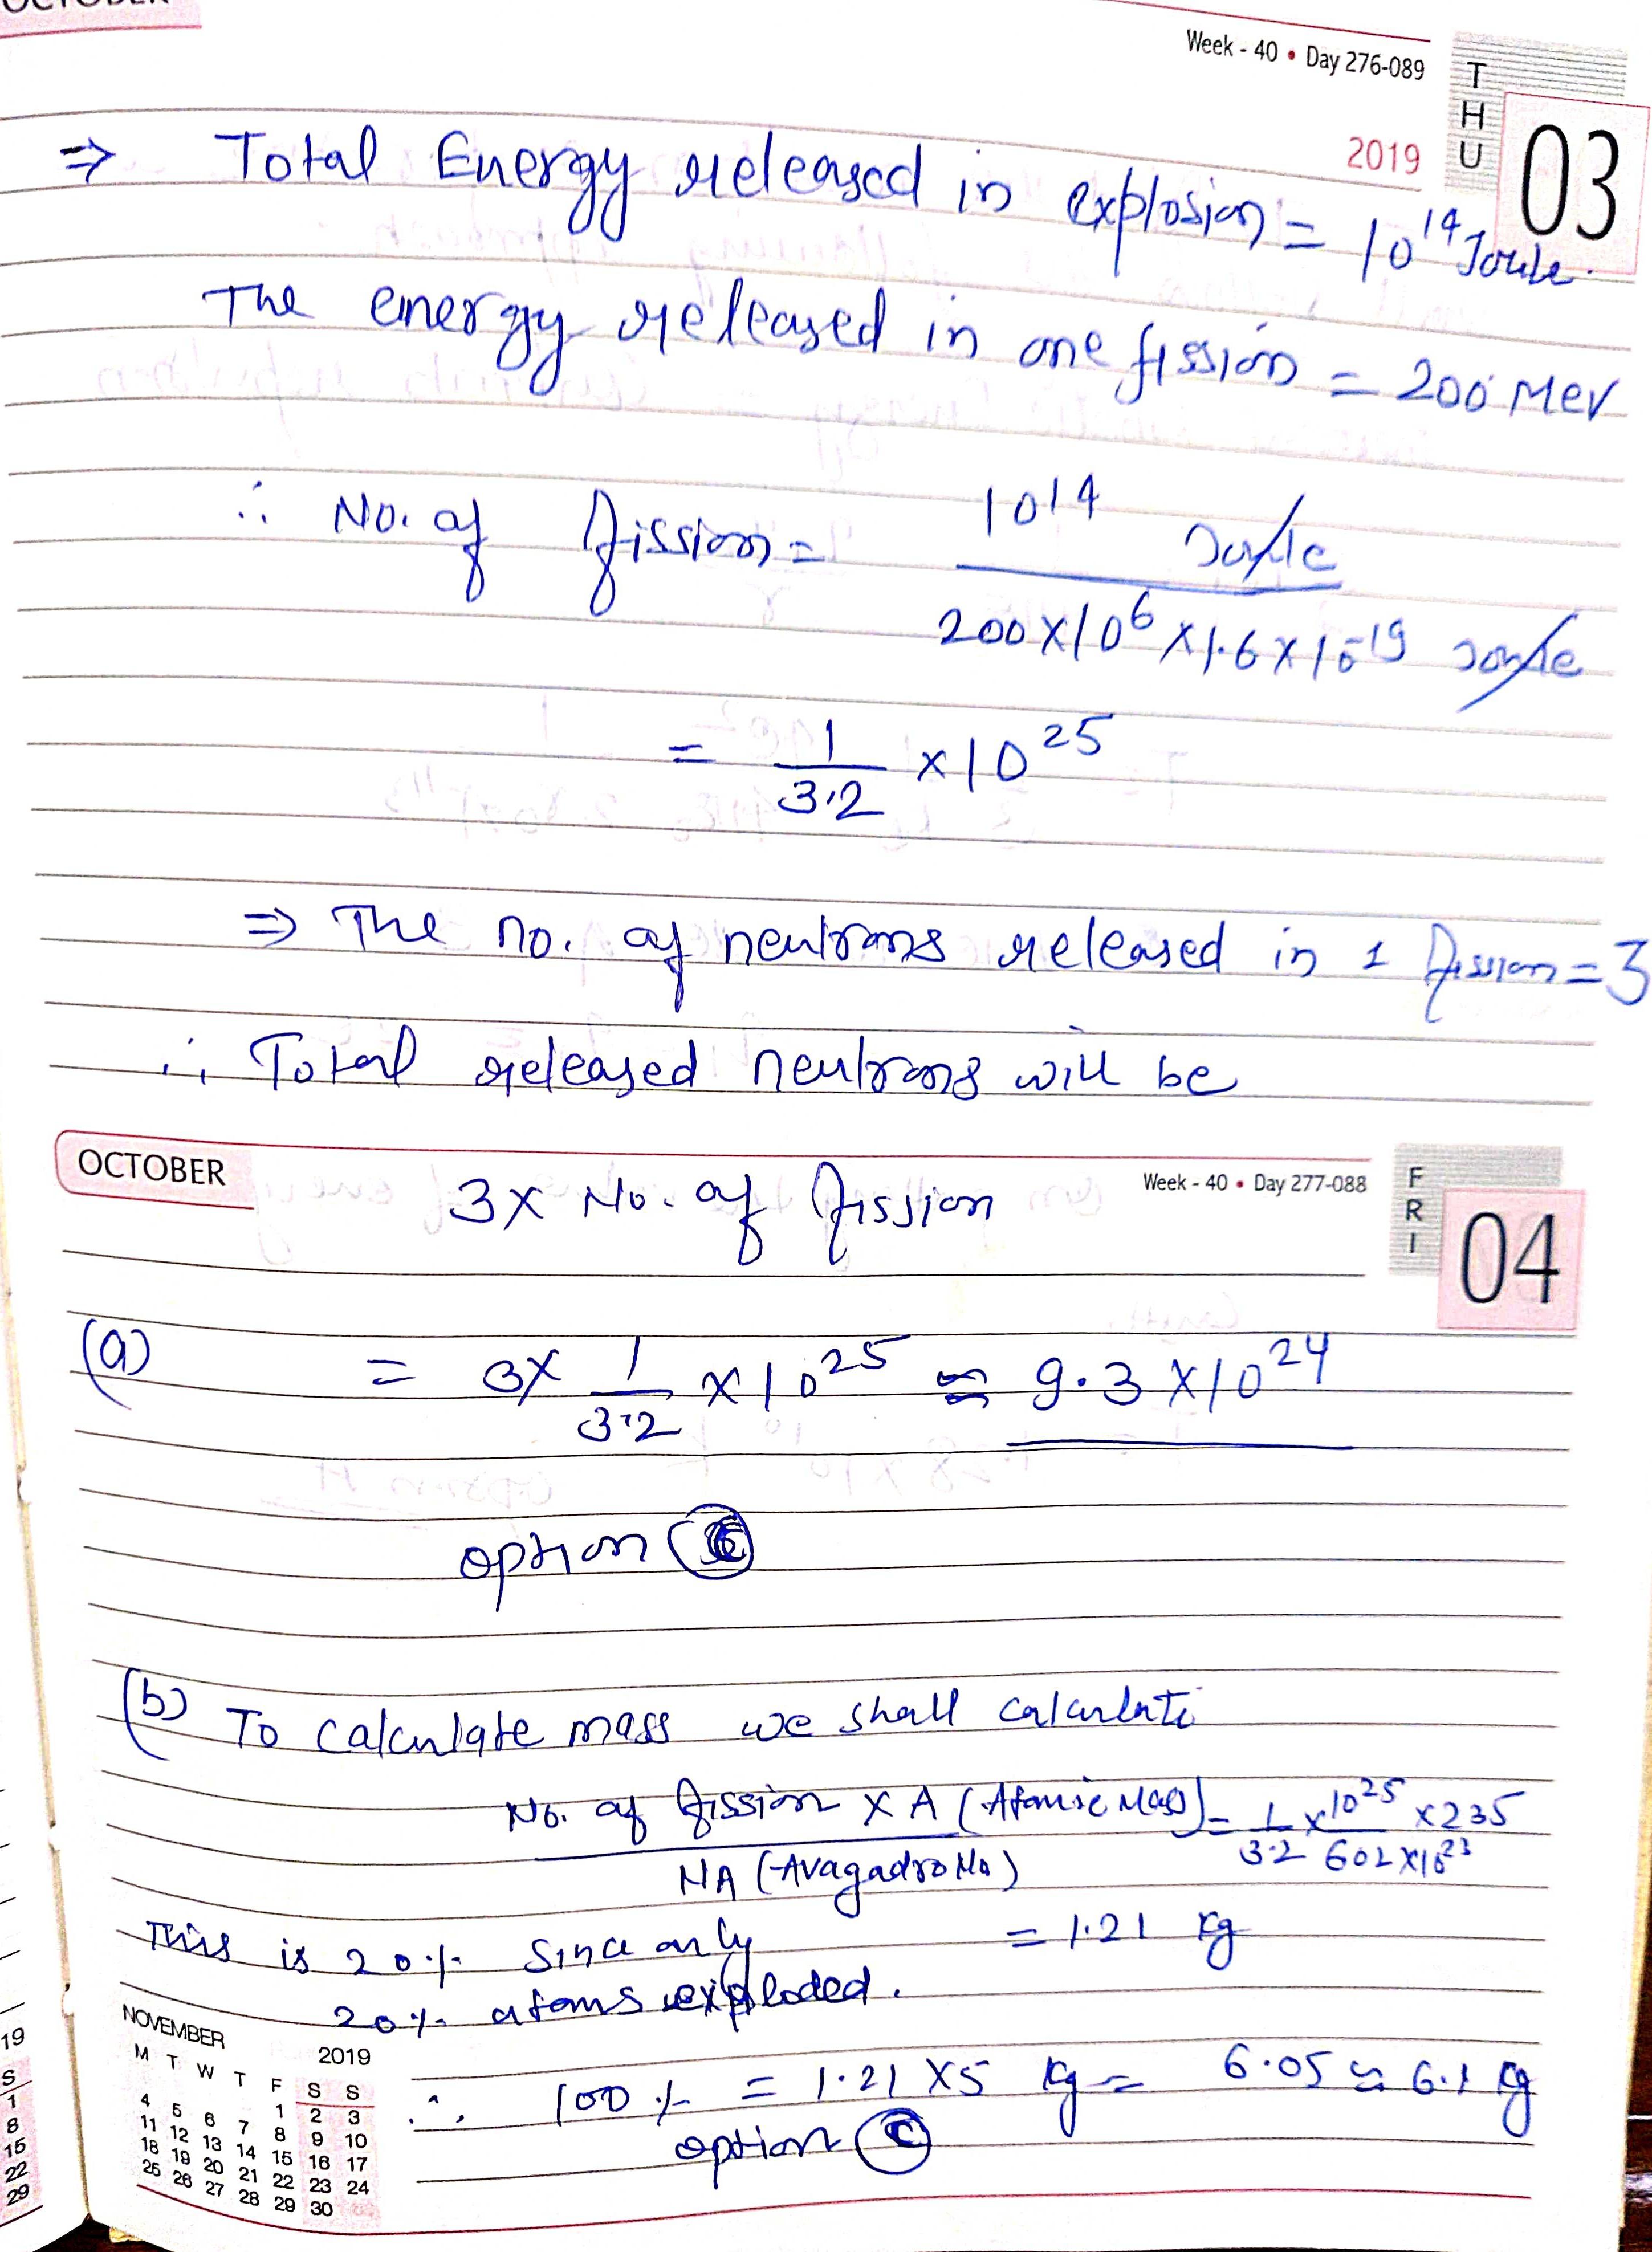 OCTOBER
Week - 40 • Day 276-089
THU
2019
03
⇒ Total Energy released in explosion = 10^14 Joule.
The energy released in one fission = 200 MeV
∴ No. of fission = 10^14 Joule / 200×10^6 ×1.6×10^-19 Joule
= 1/3.2 ×10^25
⇒ The no. of neutrons released in 1 fission = 3
∴ Total released neutrons will be
OCTOBER
Week - 40 • Day 277-088
FRI
04
3× No. of fission
(a) = 3× 1/3.2 ×10^25 ≈ 9.3 ×10^24
option C
(b) To calculate mass we shall calculate
No. of fission × A (Atomic Mass) / NA (Avagadro No) = 1/3.2 × 10^25/602×10^23 ×235
This is 20% Since only = 1.21 Kg
20% atoms exploded.
∴ 100 % = 1.21 ×5 Kg = 6.05 ≈ 6.1 Kg
option C
NOVEMBER 2019
M T W T F S S
1 2 3
4 5 6 7 8 9 10
11 12 13 14 15 16 17
18 19 20 21 22 23 24
25 26 27 28 29 30
19
S
1
8
15
22
29